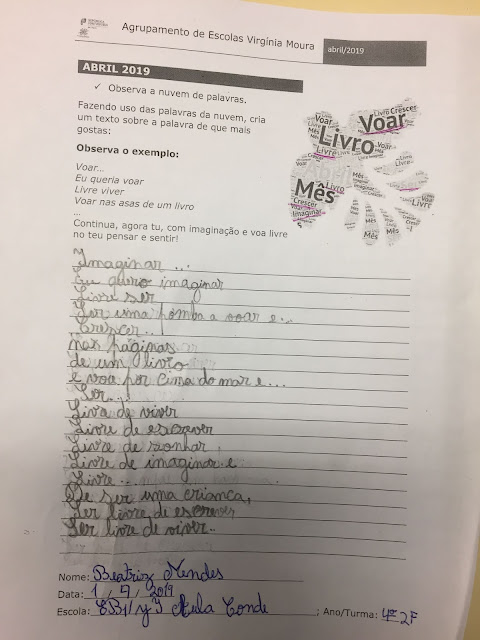 Agrupamento de Escolas Virgínia Moura
abril/2019
ABRIL 2019
✓ Observa a nuvem de palavras.
Fazendo uso das palavras da nuvem, cria
um texto sobre a palavra de que mais
gostas:
Observa o exemplo:
Voar...
Eu queria voar
Livre viver
Voar nas asas de um livro
...
Continua, agora tu, com imaginação e voa livre
no teu pensar e sentir!
Livro Crescer
Voar
Voar
Livro
Mês
Livro
Crescer
Voar
Imaginar
Mês
Imaginar...
Eu quero imaginar
Livre ser
Ser uma pomba a voar e...
Crescer...
nas páginas
de um livro
e voar por cima do mar e...
Ser...
Livre de viver
Livre de escrever
Livre de sonhar
Livre de imaginar e
Livre...
De ser uma criança,
Ser livre de escrever,
Ser livre de viver..
Nome: Beatriz Mendes
Data: 1 / 7 / 2019
Escola: EB1/ Conde ; Ano/Turma: 4º 2F